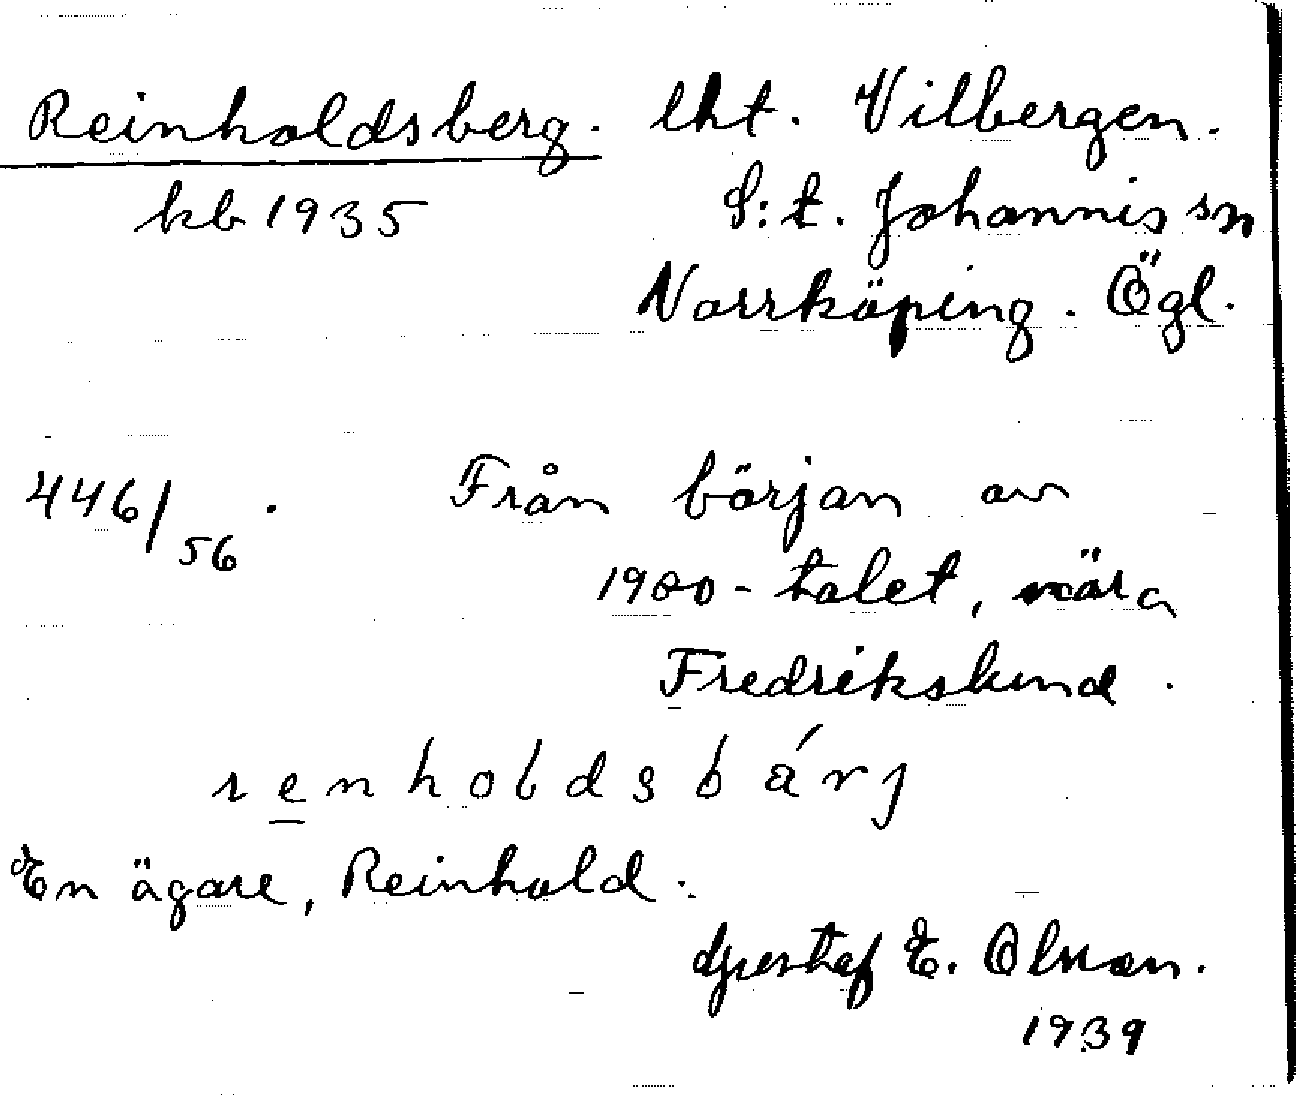 Reinholdsberg. lht. Vilbergen.
kb 1935 S:t. Johannis sn
Norrköping. Ögl.
446/56. Från början av
1900-talet, nära
Fredrikslund.
renholdsbárj
En ägare, Reinhold.
Gustaf E. Olson.
1939